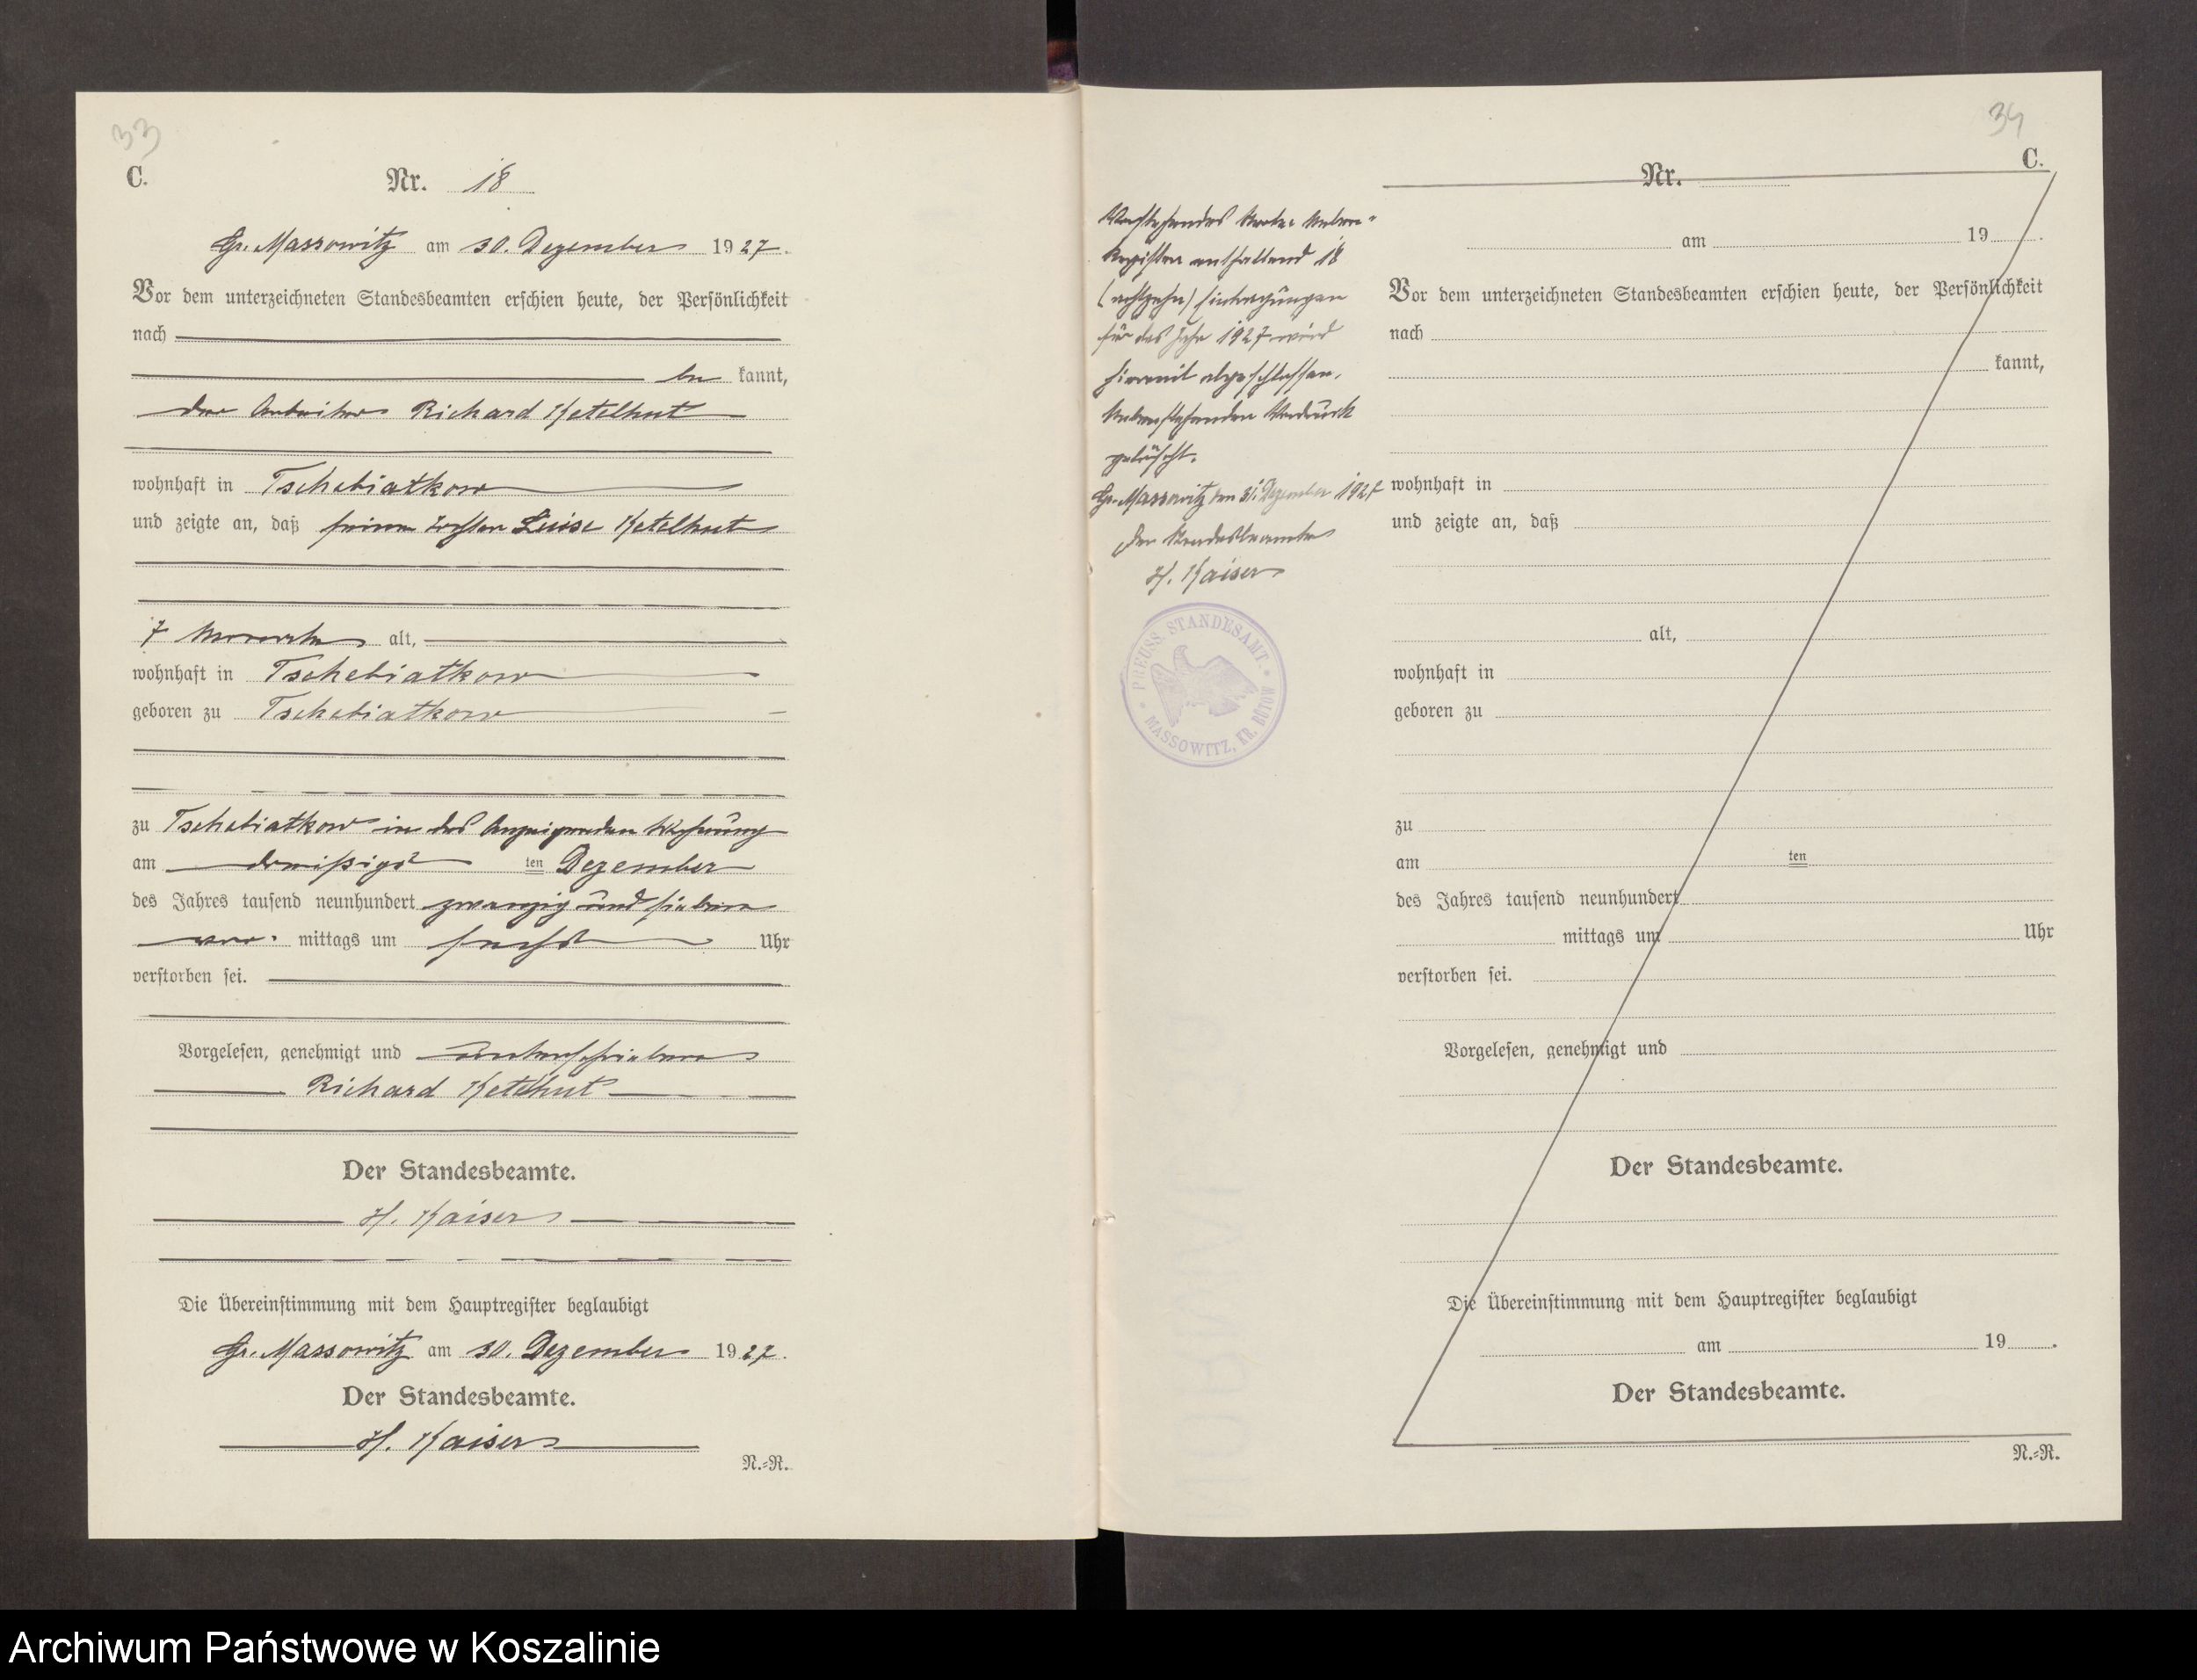 33
C.
Nr. 18
Gr. Massowitz am 30. Dezember 1927.
Vor dem unterzeichneten Standesbeamten erschien heute, der Persönlichkeit
nach
be kannt,
der Arbeiter Richard Ketelhut
wohnhaft in Tschebiatkow
und zeigte an, daß seine Tochter Luise Ketelhut
7 Monate alt,
wohnhaft in Tschebiatkow
geboren zu Tschebiatkow
zu Tschebiatkow in des Anzeigenden Wohnung
am dreißigs ten Dezember
des Jahres tausend neunhundert zwanzig und sieben
vor mittags um sechs Uhr
verstorben sei.
Vorgelesen, genehmigt und unterschrieben
Richard Ketelhut
Der Standesbeamte.
H. Kaiser
Die Übereinstimmung mit dem Hauptregister beglaubigt
Gr. Massowitz am 30. Dezember 1927.
Der Standesbeamte.
H. Kaiser
N.=R.
Vorstehendes Sterbe-Neben-
Register enthaltend 18
(achtzehn) Eintragungen
für das Jahr 1927 wird
hiermit abgeschlossen.
Nebenstehender Vordruck
gelöscht.
Gr. Massowitz den 31. Dezember 1927
Der Standesbeamte
H. Kaiser
PREUSS. STANDESAMT.
MASSOWITZ, KR. BÜTOW
34
C.
Nr.
am 19 .
Vor dem unterzeichneten Standesbeamten erschien heute, der Persönlichkeit
nach
kannt,
wohnhaft in
und zeigte an, daß
alt,
wohnhaft in
geboren zu
zu
am ten
des Jahres tausend neunhundert
mittags um Uhr
verstorben sei.
Vorgelesen, genehmigt und
Der Standesbeamte.
Die Übereinstimmung mit dem Hauptregister beglaubigt
am 19 .
Der Standesbeamte.
N.=R.
Archiwum Państwowe w Koszalinie